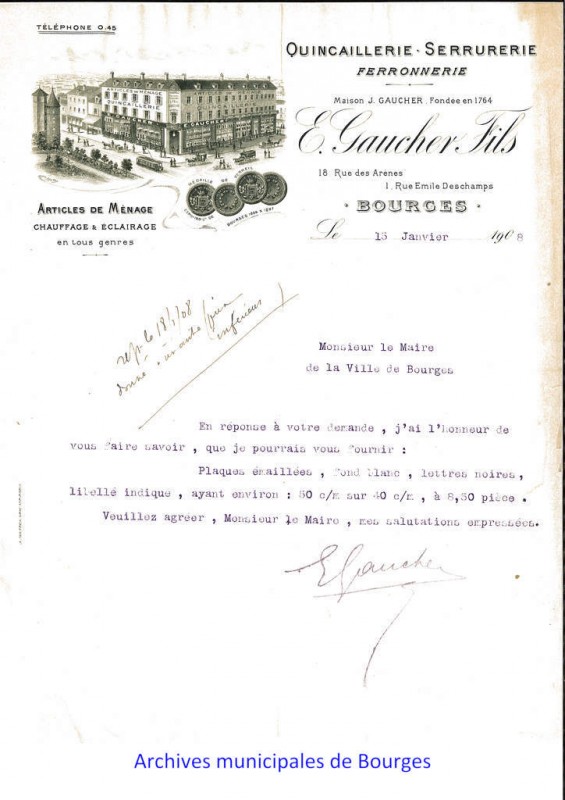 TÉLÉPHONE 0.45
ARTICLES DE MÉNAGE
QUINCAILLERIE
E. GAUCHER
QUINCAILLERIE - SERRURERIE
FERRONNERIE
Maison J. GAUCHER. Fondée en 1764
E. Gaucher Fils
18 Rue des Arènes
1. Rue Emile Deschamps
BOURGES
MÉDAILLE DE VERMEIL
ARTICLES DE MÉNAGE
CHAUFFAGE & ECLAIRAGE
en tous genres
Le 13 Janvier 1908
rép. le 18/1/08
donné
inférieur
Monsieur le Maire
de la Ville de Bourges
En réponse à votre demande , j'ai l'honneur de
vous faire savoir , que je pourrais vous fournir :
Plaques émaillées , fond blanc , lettres noires,
libellé indique , ayant environ : 50 c/m sur 40 c/m , à 8,50 pièce .
Veuillez agréer , Monsieur le Maire , mes salutations empressées.
E Gaucher
Archives municipales de Bourges